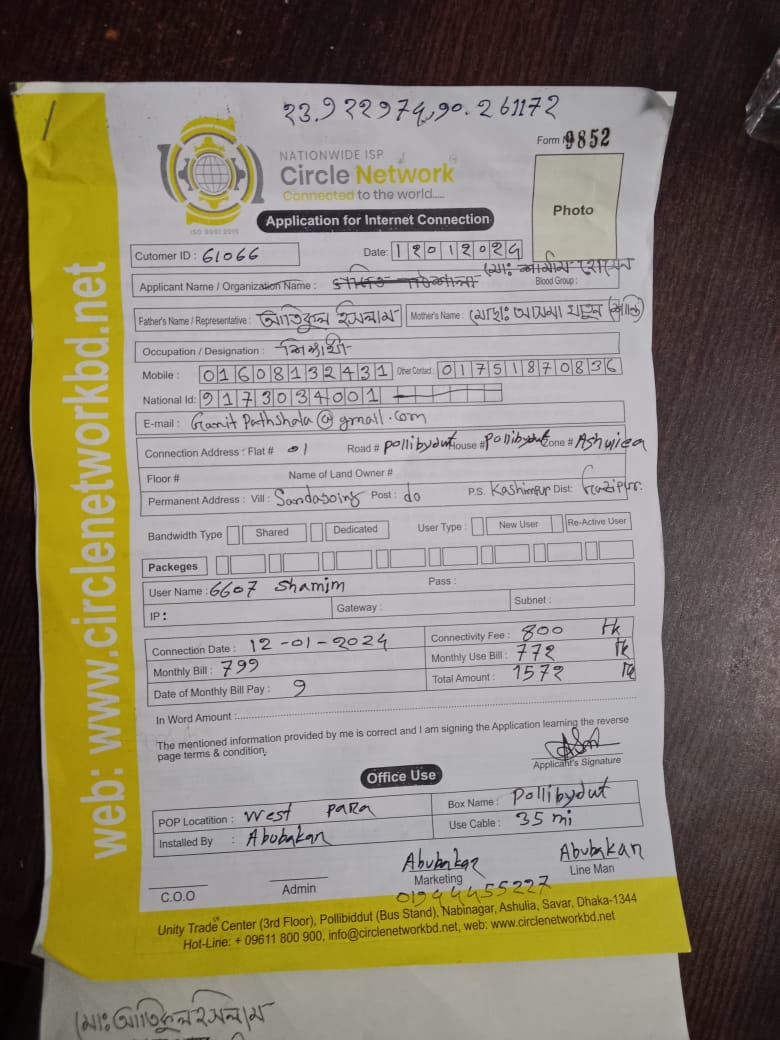 23.922974,90.261172
Form № 9852
NATIONWIDE ISP
Circle Network
Connected to the world....
ISO 9001:2015
Application for Internet Connection
Photo
Cutomer ID : 61066
Date: 12012024
Applicant Name / Organization Name : গণিত পাঠশালা মোঃ শামীম হোসেন
Blood Group :
Father's Name / Representative : আতিকুল ইসলাম Mother's Name : মোছাঃ আসমা খাতুন
Occupation / Designation :
Mobile : 01608132431 Other Contact : 01751870836
National Id: 9173034001
E-mail : Ganit Pathshala@gmail.com
Connection Address : Flat # 01 Road # pollibydut House # pollibydut Zone # Ashulea
Floor # Name of Land Owner #
Permanent Address : Vill : Post : do P.S. Kashimpur Dist: Gazipur.
Bandwidth Type Shared Dedicated User Type : New User Re-Active User
Packeges
User Name : 6607 Shamim Pass :
IP : Gateway : Subnet :
Connection Date : 12-01-2024 Connectivity Fee : 800 Tk
Monthly Bill : 799 Monthly Use Bill : 772 Tk
Date of Monthly Bill Pay : 9 Total Amount : 1572 Tk
In Word Amount :
The mentioned information provided by me is correct and I am signing the Application learning the reverse
page terms & condition.
Applicant's Signature
Office Use
POP Locatition : West PARA Box Name : Pollibydut
Installed By : Abubakan Use Cable : 35 mi
Abubakar Abubakan
C.O.O Admin Marketing Line Man
01944455227
Unity Trade Center (3rd Floor), Pollibiddut (Bus Stand), Nabinagar, Ashulia, Savar, Dhaka-1344
Hot-Line: + 09611 800 900, info@circlenetworkbd.net, web: www.circlenetworkbd.net
web: www.circlenetworkbd.net
মোঃ আতিকুল ইসলাম